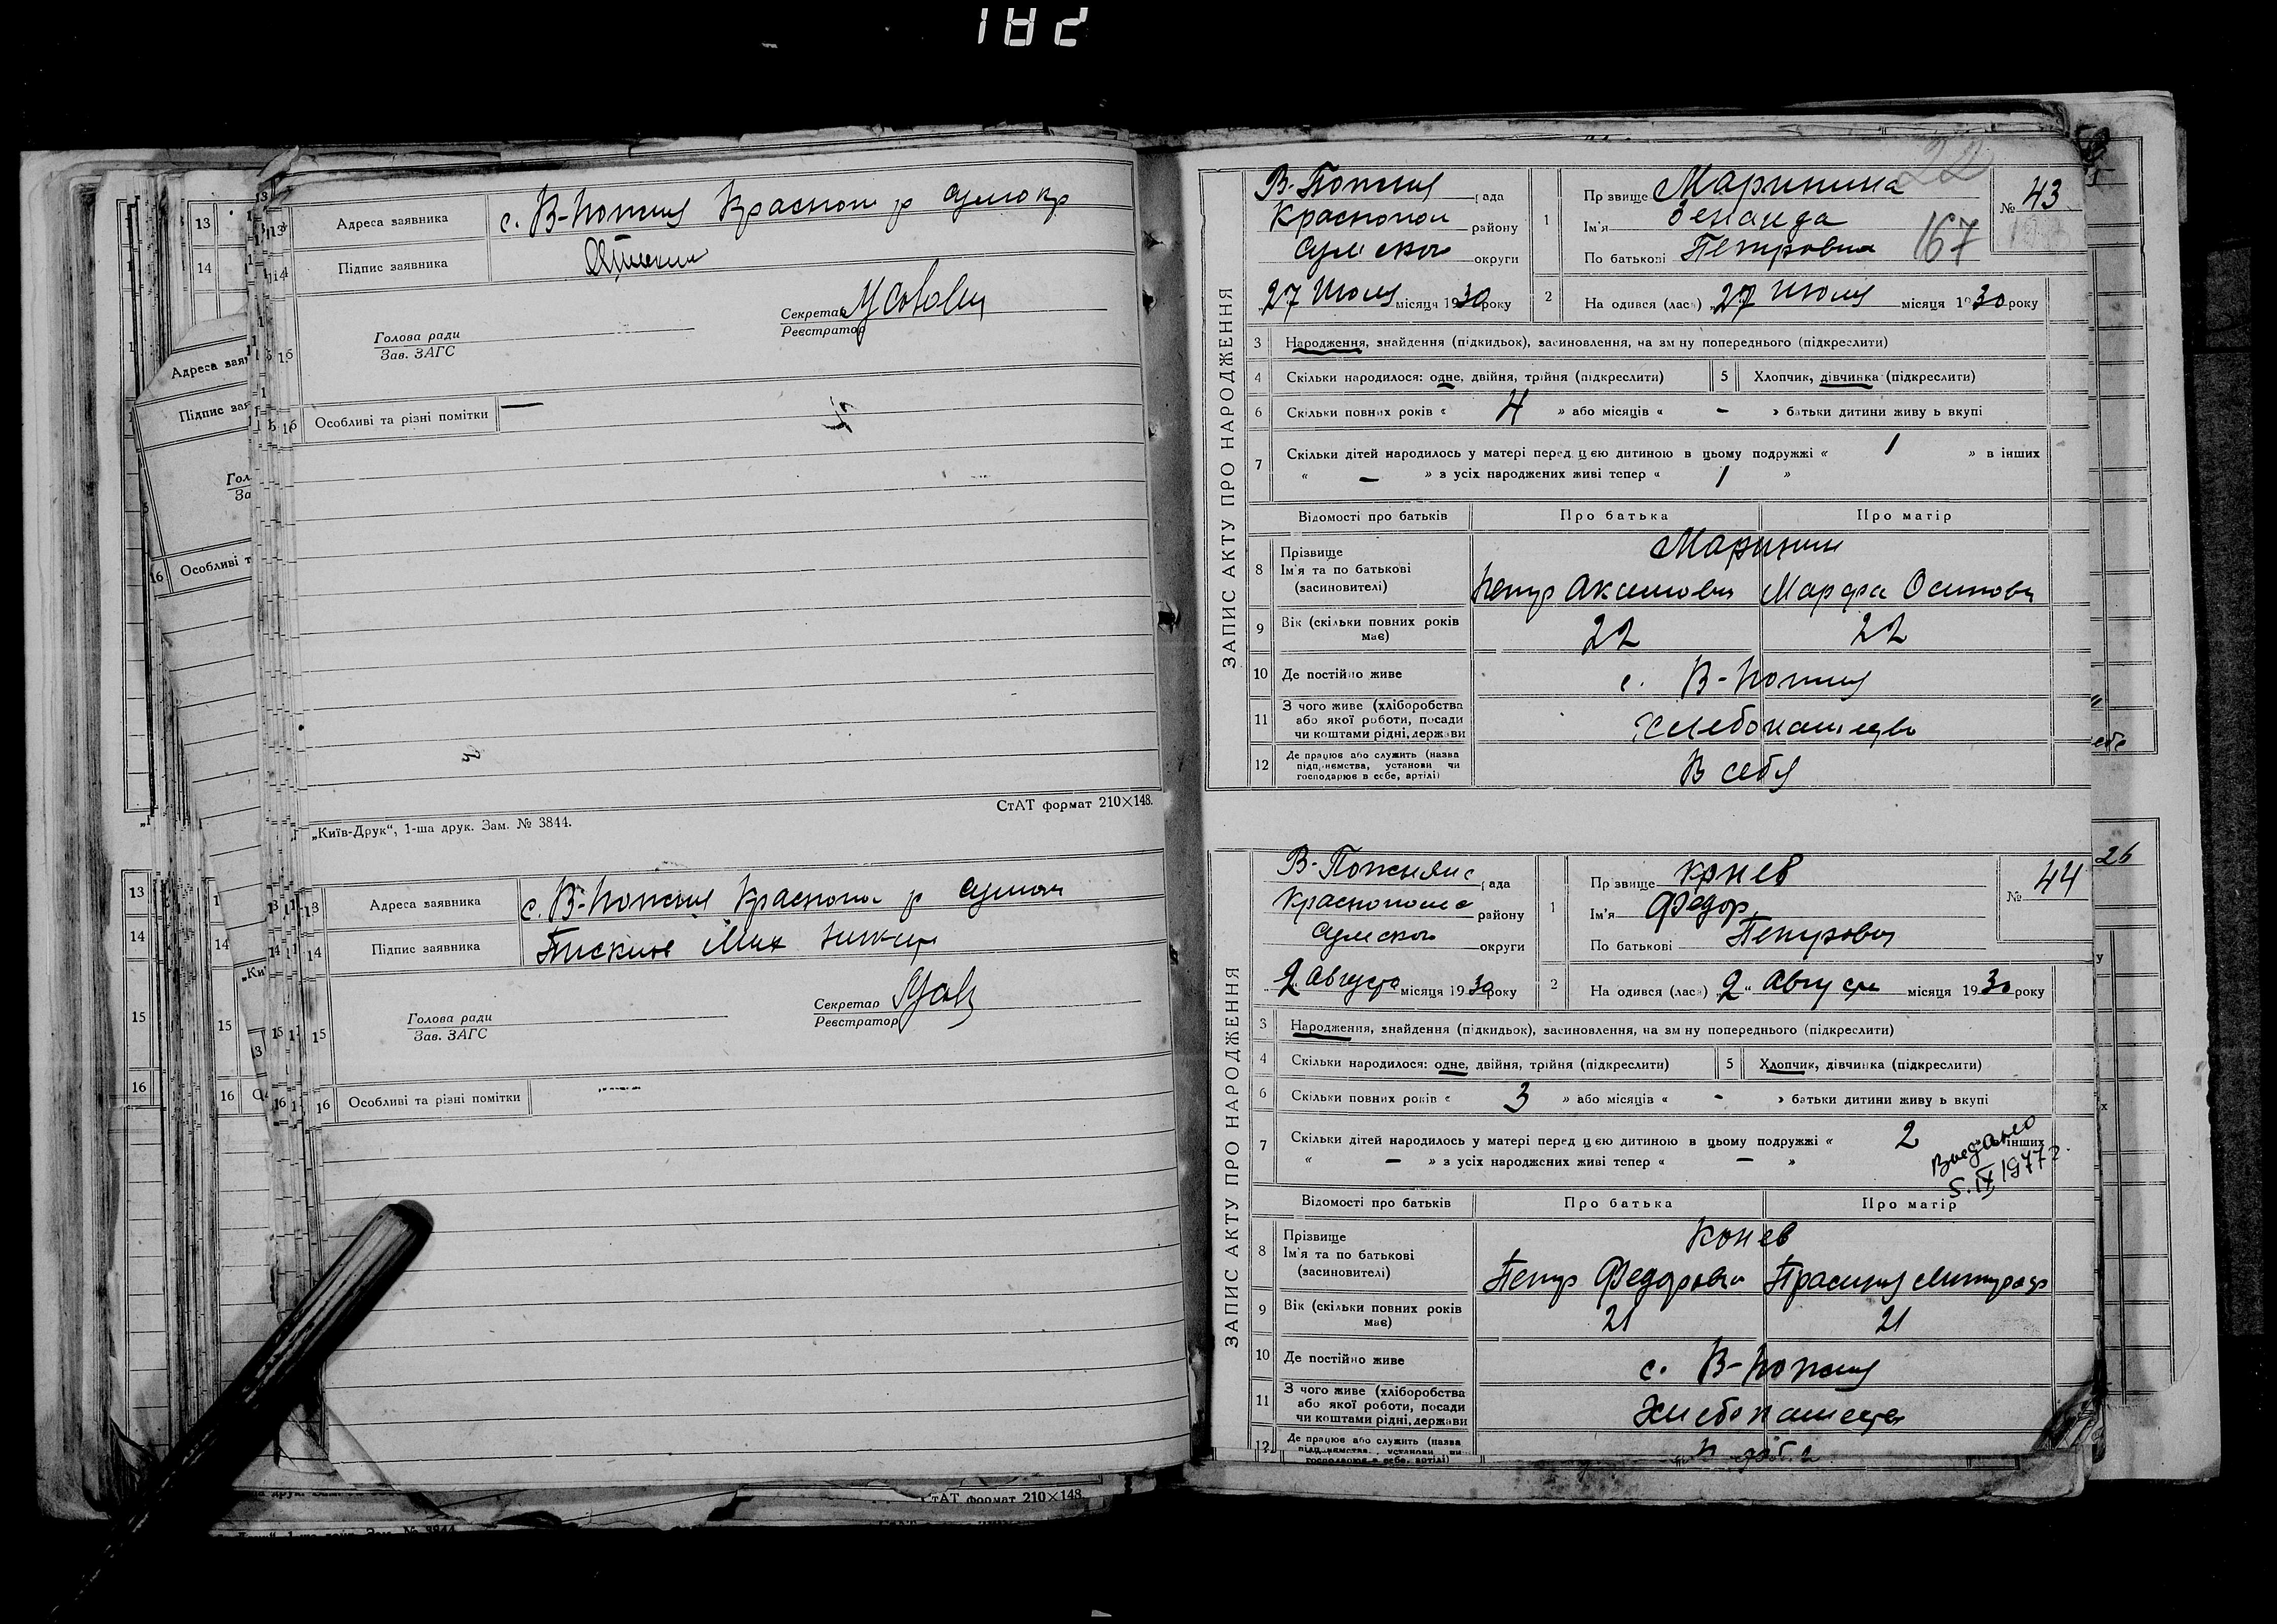 182
13 Адреса заявника с. В-Пожня Краснопол р Сумокр
14 Підпис заявника
Секретар
Реєстратор
Голова ради
Зав. ЗАГС
15
16 Особливі та різні помітки —
СтАТ формат 210×148.
„Київ-Друк“, 1-ша друк. Зам. № 3844.
13 Адреса заявника с. В-Пожня Краснопол р Сумск
14 Підпис заявника
Секретар
Реєстратор
Голова ради
Зав. ЗАГС
15
16 Особливі та різні помітки
22
ЗАПИС АКТУ ПРО НАРОДЖЕННЯ
В-Пожня рада
Краснопол району
Сумской округи
27 Июля місяця 1930 року
1 Прізвище Маринина
Ім'я Зенаида
По батькові Петровна
167
№ 43
2 Народився (лась) 27 Июля місяця 1930 року
3 Народження, знайдення (підкидьок), засиновлення, на зміну попереднього (підкреслити)
4 Скільки народилося: одне, двійня, трійня (підкреслити) 5 Хлопчик, дівчинка (підкреслити)
6 Скільки повних років « 4 » або місяців « - » батьки дитини живуть вкупі
7 Скільки дітей народилось у матері перед цією дитиною в цьому подружжі « 1 » в інших
« — » з усіх народжених живі тепер « 1 »
Відомості про батьків Про батька Про матір
8 Прізвище Маринин
Ім'я та по батькові
(засиновителі) Петр Акимович Марфа Осиповн
9 Вік (скільки повних років має) 22 22
10 Де постійно живе с. В-Пожня
11 З чого живе (хліборобства
або якої роботи, посади
чи коштами рідні, держави Хлебопашество
12 Де працює або служить (назва
підприємства, установи чи
господарює в себе, артілі) В себя
ЗАПИС АКТУ ПРО НАРОДЖЕННЯ
В-Пожнянс рада
Краснопольс району
Сумской округи
2 Августа місяця 1930 року
1 Прізвище Конев
Ім'я Федор
По батькові Петрович
№ 44
2 Народився (лась) „2“ Августа місяця 1930 року
3 Народження, знайдення (підкидьок), засиновлення, на зміну попереднього (підкреслити)
4 Скільки народилося: одне, двійня, трійня (підкреслити) 5 Хлопчик, дівчинка (підкреслити)
6 Скільки повних років « 3 » або місяців « - » батьки дитини живуть вкупі
7 Скільки дітей народилось у матері перед цією дитиною в цьому подружжі « 2 » в інших
« — » з усіх народжених живі тепер « — »
5.IX 1977г.
Відомості про батьків Про батька Про матір
8 Прізвище Конев
Ім'я та по батькові
(засиновителі) Петр Федорович
9 Вік (скільки повних років має) 21 21
10 Де постійно живе с. В-Пожня
11 З чого живе (хліборобства
або якої роботи, посади
чи коштами рідні, держави Хлебопашество
12 Де працює або служить (назва
підприємства, установи чи
господарює в себе, артілі)